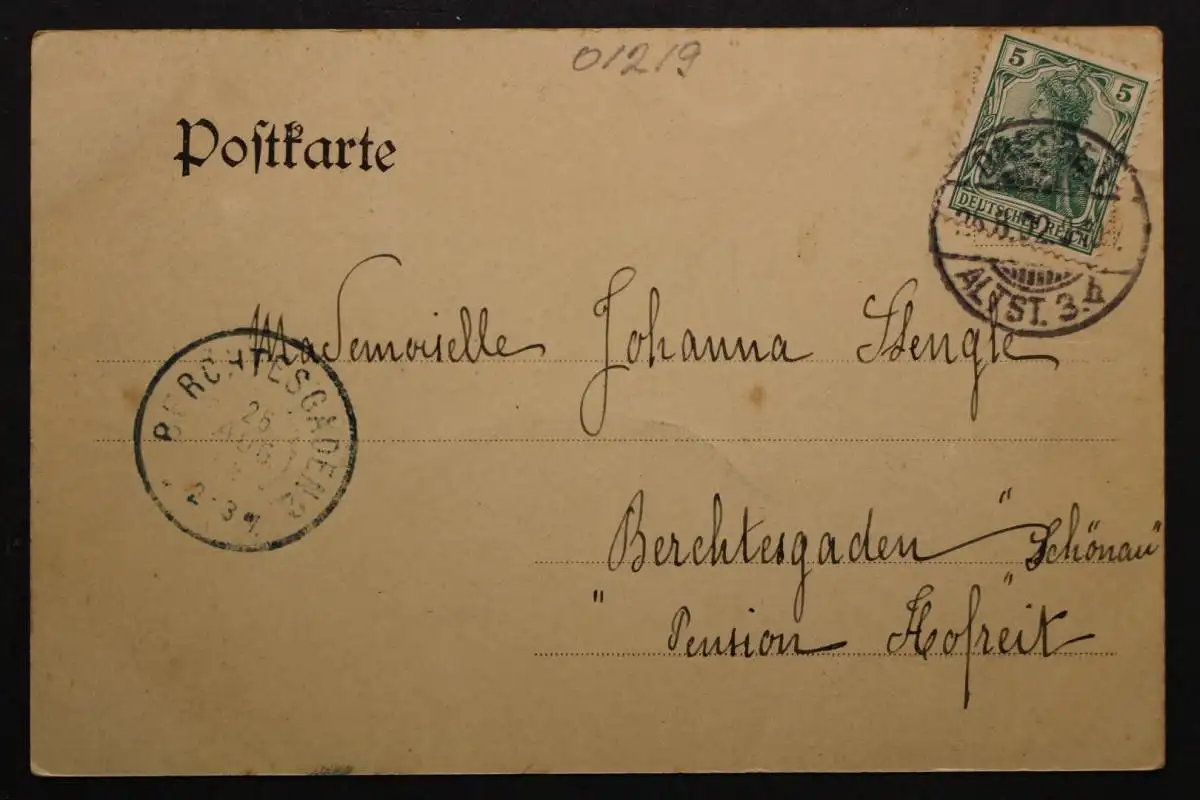 01219
Postkarte
5 5
DEUTSCHES REICH
DRESDEN
8.02
ALTST. 3.h
Mademoiselle Johanna Stengle
BERCHTESGADEN 2
26
AUG
2-3
Berchtesgaden "Schönau"
"Pension Hofreit"